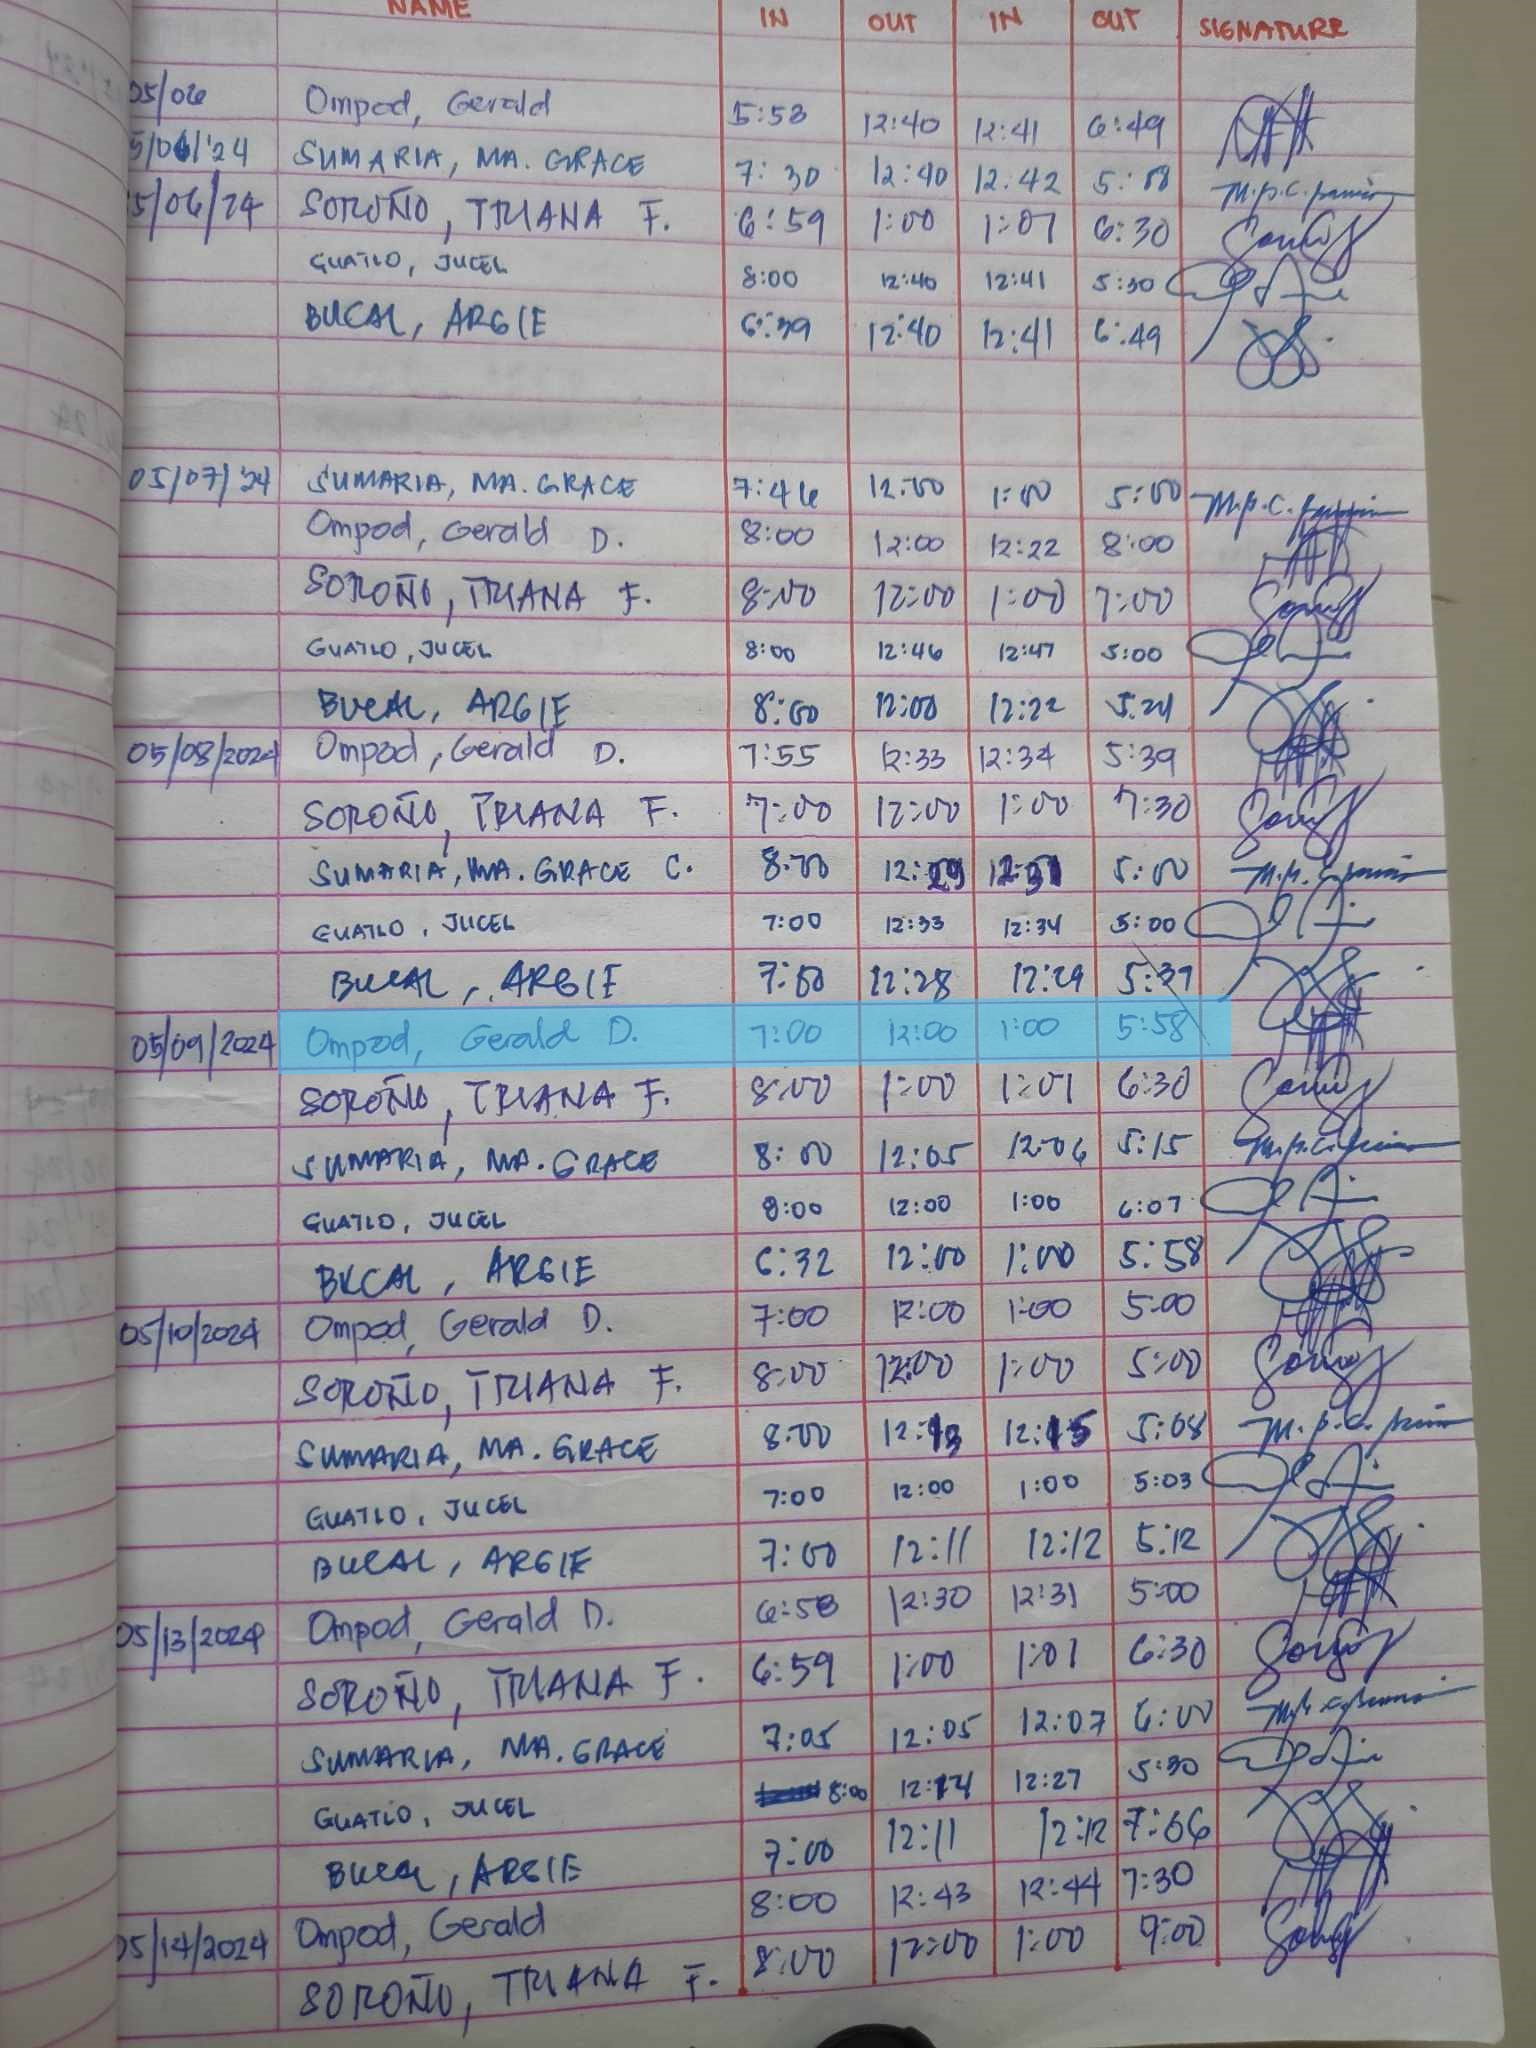 NAME IN OUT IN OUT SIGNATURE
05/06 Ompod, Gerald 5:53 12:40 12:41 6:49
5/06/'24 SUMARIA, MA. GRACE 7:30 12:40 12:42 5:08
5/06/24 SOROÑO, TRIANA F. 6:59 1:00 1:01 6:30
GUATLO, JUCEL 8:00 12:40 12:41 5:30
BUCAL, ARGIE 6:39 12:40 12:41 6:49
05/07/'24 SUMARIA, MA. GRACE 7:46 12:00 1:00 5:00
Ompod, Gerald D. 8:00 12:00 12:22 8:00
SOROÑO, TRIANA F. 8:00 12:00 1:00 7:00
GUATLO, JUCEL 8:00 12:46 12:47 5:00
BUCAL, ARGIE 8:00 12:00 12:22 5:24
05/08/2024 Ompod, Gerald D. 7:55 12:33 12:34 5:39
SOROÑO, TRIANA F. 7:00 12:00 1:00 7:30
SUMARIA, MA. GRACE C. 8:00 12:29 12:31 5:00
GUATLO, JUCEL 7:00 12:33 12:34 5:00
BUCAL, ARGIE 7:00 12:28 12:29 5:39
05/09/2024 Ompod, Gerald D. 7:00 12:00 1:00 5:58
SOROÑO, TRIANA F. 8:00 1:00 1:01 6:30
SUMARIA, MA. GRACE 8:00 12:05 12:06 5:15
GUATLO, JUCEL 8:00 12:00 1:00 6:07
BUCAL, ARGIE 6:32 12:00 1:00 5:58
05/10/2024 Ompod, Gerald D. 7:00 12:00 1:00 5:00
SOROÑO, TRIANA F. 8:00 12:00 1:00 5:00
SUMARIA, MA. GRACE 8:00 12:13 12:15 5:08
GUATLO, JUCEL 7:00 12:00 1:00 5:03
BUCAL, ARGIE 7:00 12:11 12:12 5:12
05/13/2024 Ompod, Gerald D. 6:58 12:30 12:31 5:00
SOROÑO, TRIANA F. 6:59 1:00 1:01 6:30
SUMARIA, MA. GRACE 7:05 12:05 12:07 6:00
GUATLO, JUCEL 8:00 12:14 12:27 5:30
BUCAL, ARGIE 7:00 12:11 12:12 7:06
05/14/2024 Ompod, Gerald 8:00 12:43 12:44 7:30
SOROÑO, TRIANA F. 8:00 12:00 1:00 9:00